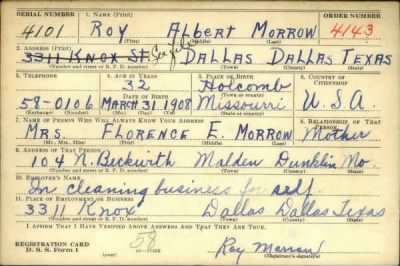 SERIAL NUMBER 1. NAME (Print) ORDER NUMBER
4101 ROY ALBERT MORROW 4143
(First) (Middle) (Last)
2. ADDRESS (Print)
3311 KNOX ST. DALLAS DALLAS TEXAS
(Number and street or R. F. D. number) (Town) (County) (State)
3. TELEPHONE 4. AGE IN YEARS 5. PLACE OF BIRTH 6. COUNTRY OF CITIZENSHIP
32 Holcomb
58-0106 MARCH 31 1908 Missourri U.S.A.
(Exchange) (Number) (Mo.) (Day) (Yr.) (State or country)
7. NAME OF PERSON WHO WILL ALWAYS KNOW YOUR ADDRESS 8. RELATIONSHIP OF THAT PERSON
MRS. FLORENCE E. MORROW Mother
(Mr., Mrs., Miss) (First) (Middle) (Last)
9. ADDRESS OF THAT PERSON
104 N. Beckwith Malden Dunklin Mo.
(Number and street or R. F. D. number) (Town) (County) (State)
10. EMPLOYER'S NAME
In cleaning business for self.
11. PLACE OF EMPLOYMENT OR BUSINESS
3311 Knox Dallas Dallas Texas
(Number and street or R. F. D. number) (Town) (County) (State)
I AFFIRM THAT I HAVE VERIFIED ABOVE ANSWERS AND THAT THEY ARE TRUE.
REGISTRATION CARD 58 Roy Morrow
D. S. S. Form 1 (Registrant's signature)